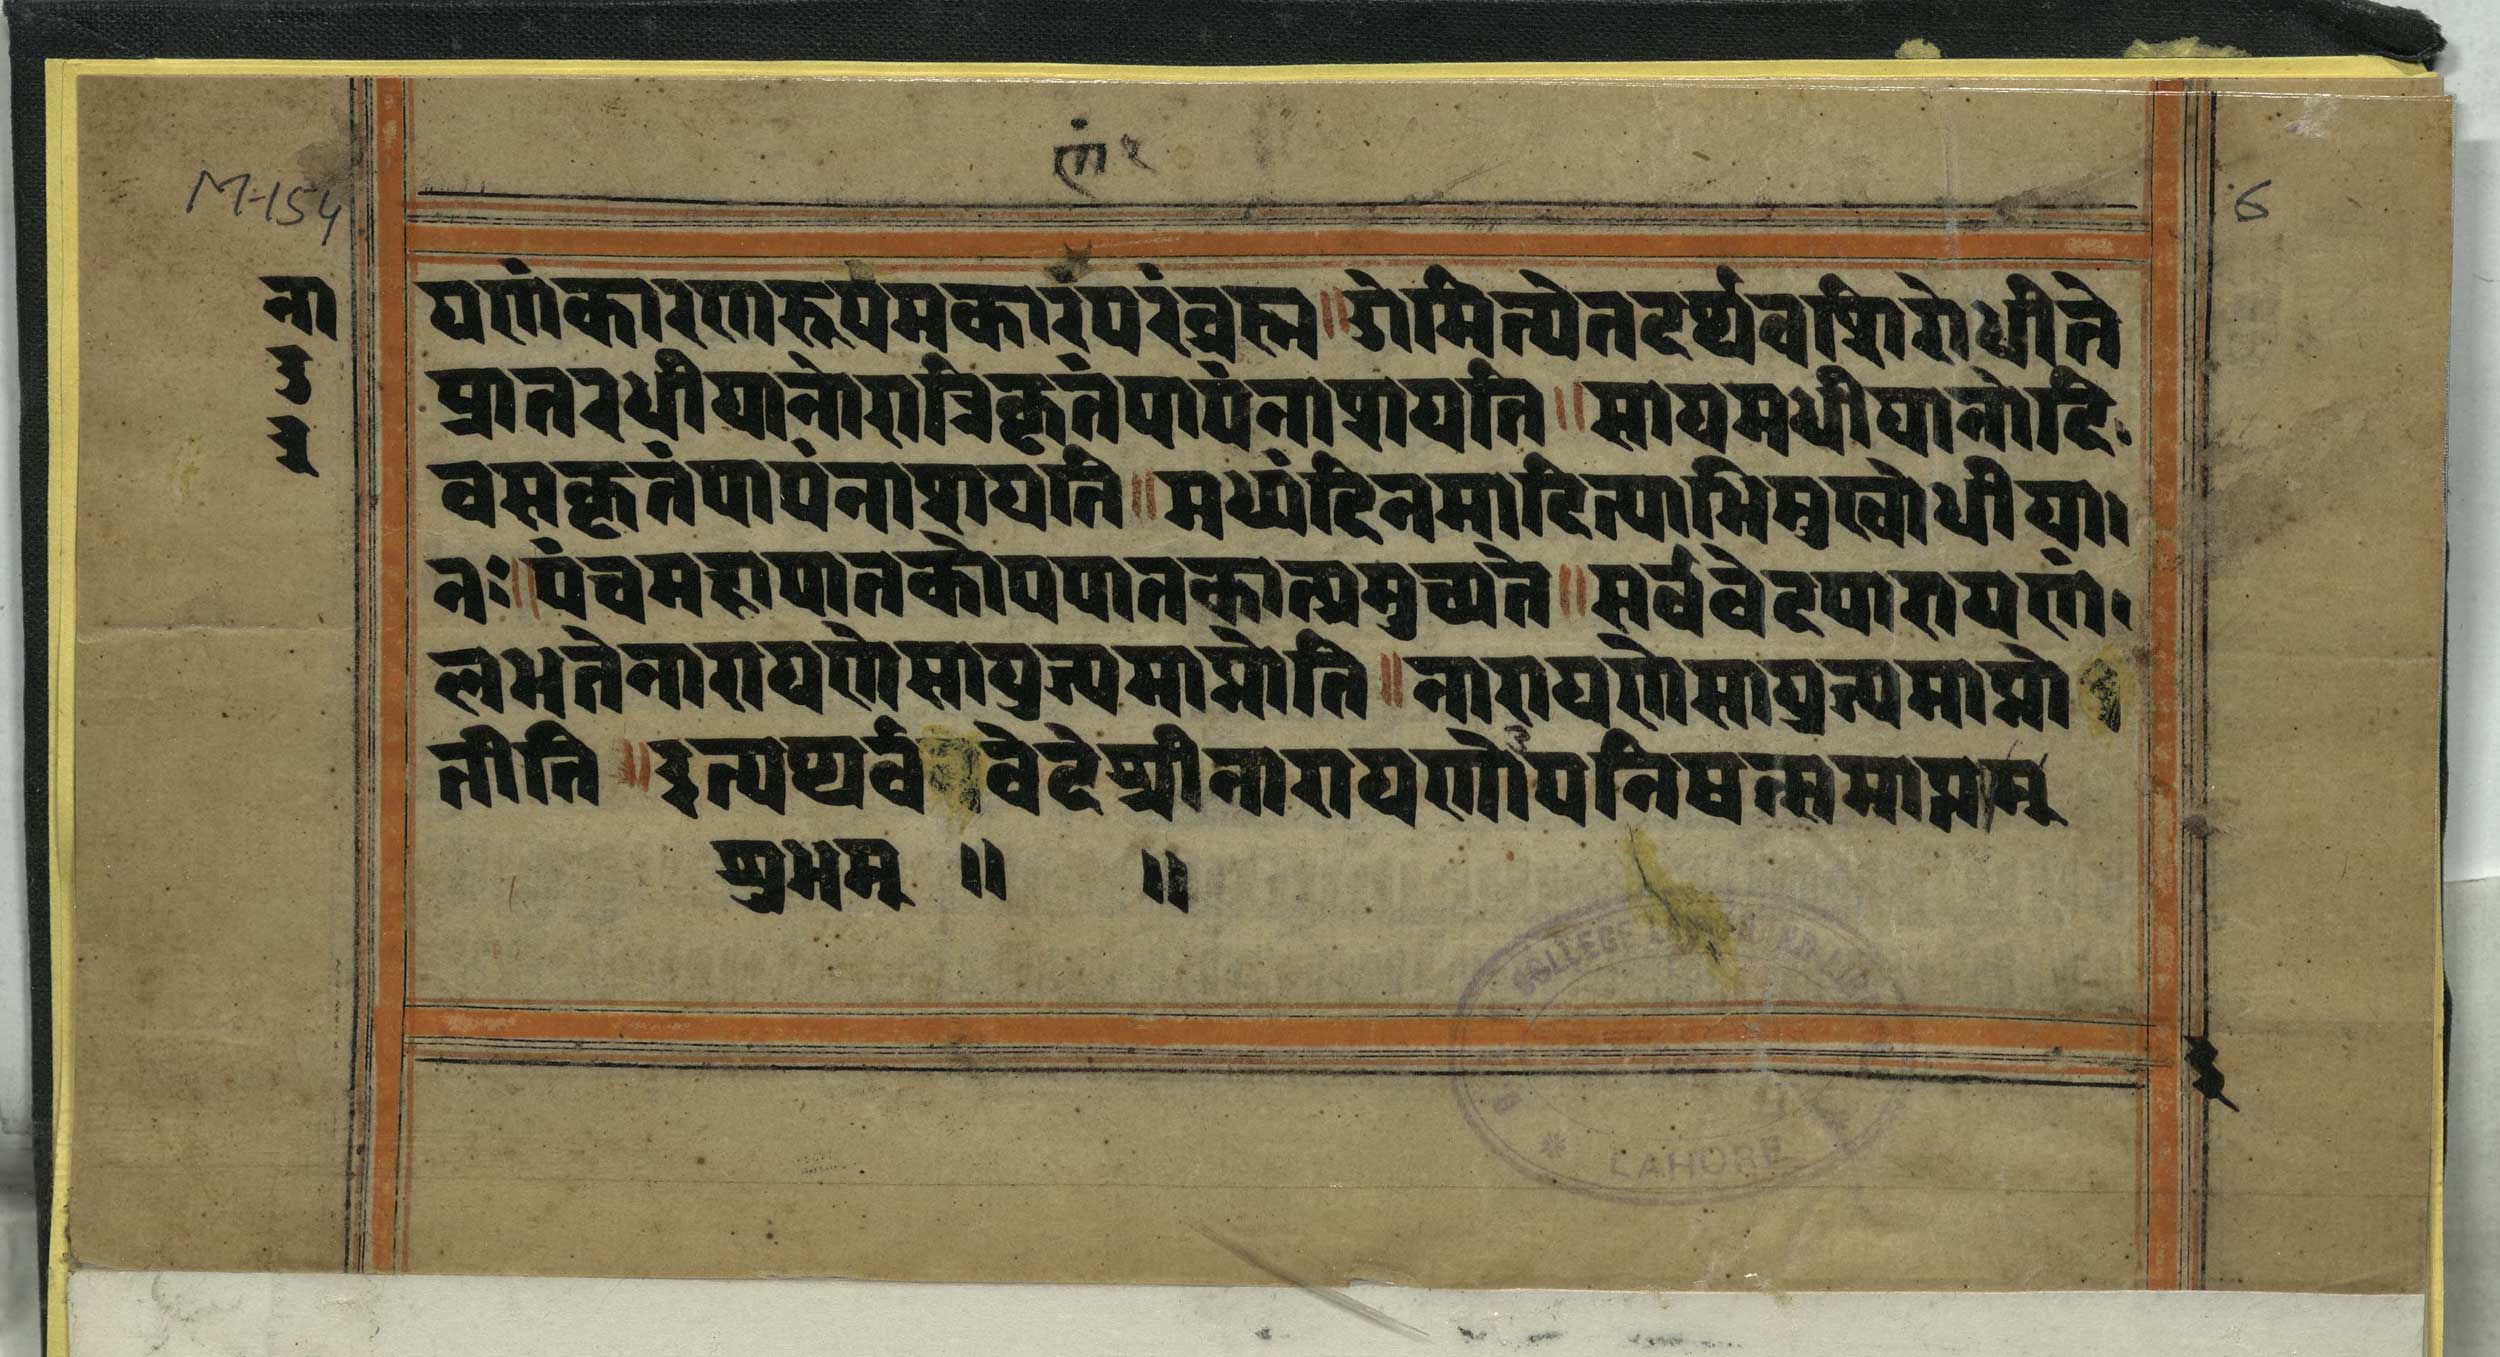 णं१
M-154
6
ना
उ
३
यणंकारणरूपमकारंपरंब्रह्म॥ॐमित्येतदर्थ्यवशिरोधीते
प्रातरधीयानोरात्रिकृतंपापंनाशयति॥सायमधीयानोदि
वसकृतंपापंनाशयति॥मध्यंदिनमादित्याभिमुखोधीया।
नः॥पंचमहापातकोपपातकात्प्रमुच्यते॥सर्ववेदपारायणं
लभतेनारायणेसायुज्यमाप्नोति॥नारायणेसायुज्यमाप्नो
तीति॥इत्यथर्ववेदेश्रीनारायणोपनिषत्समाप्तम्
शुभम् ॥ ॥
COLLEGE
LAHORE